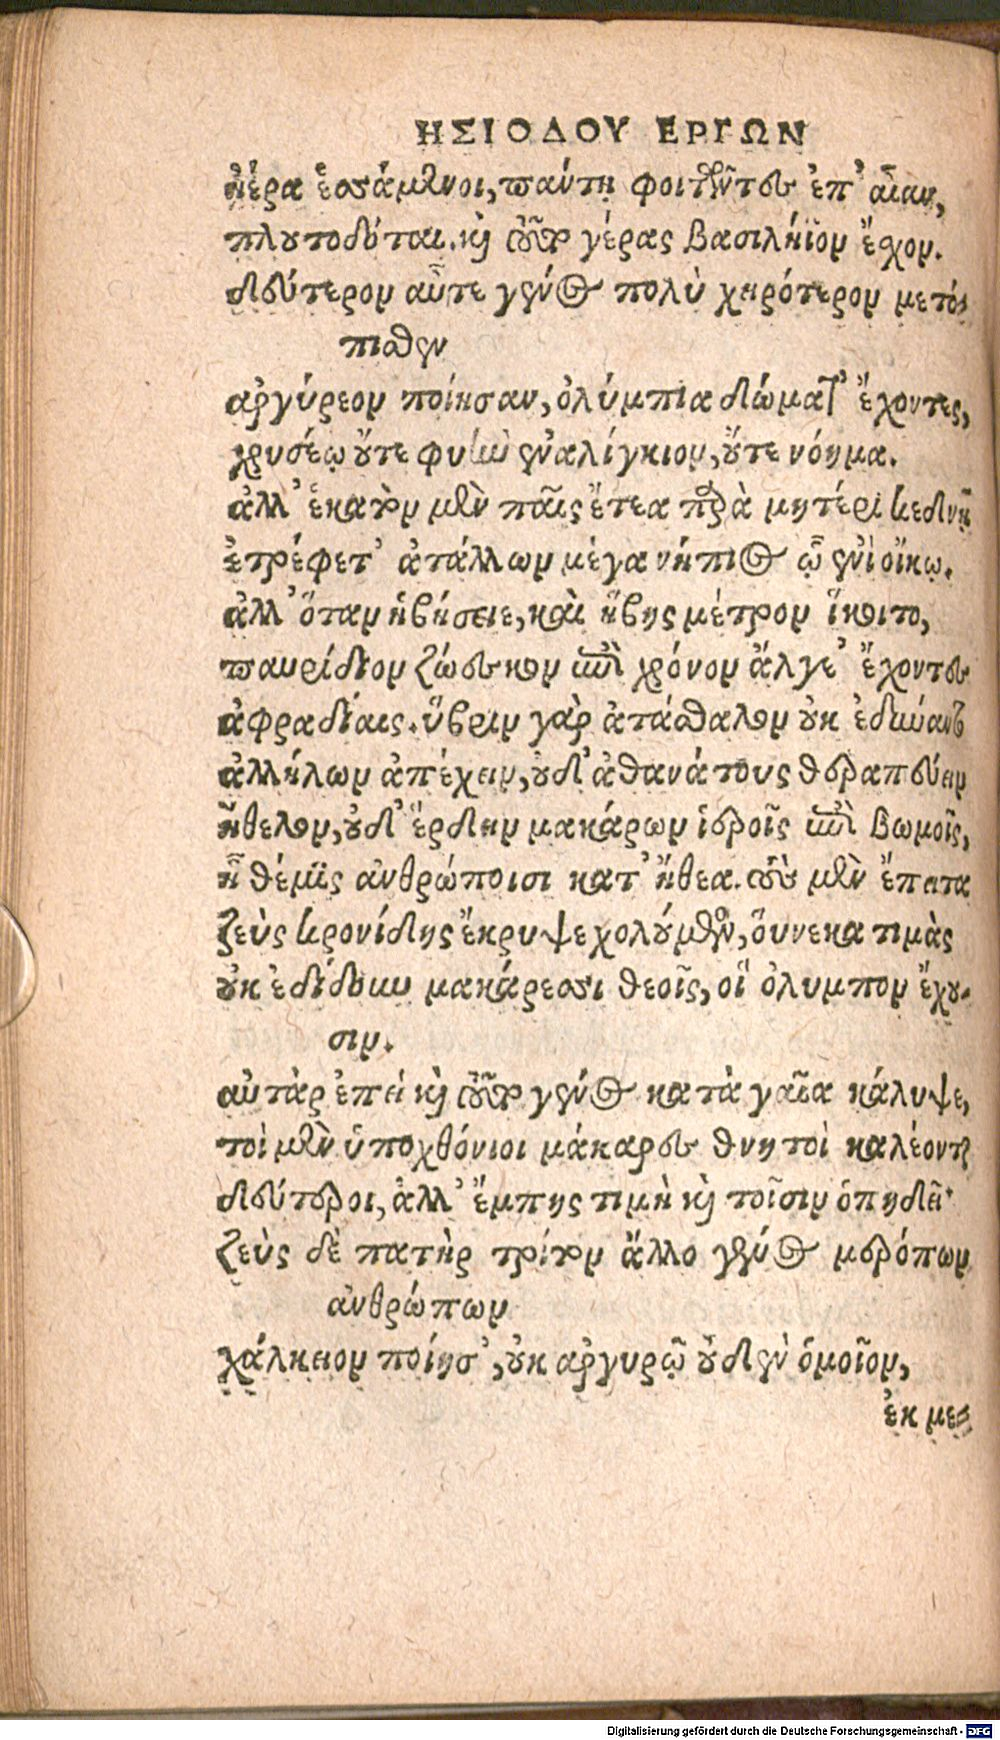 ΗΣΙΟΔΟΥ ΕΡΓΩΝ
ἠέρα ἑσσάμενοι, πάντη φοιτῶντες ἐπ' αἶαν,
πλουτοδόται. καὶ τοῦτο γέρας βασιλήϊον ἔσχον.
δεύτερον αὖτε γένος πολὺ χειρότερον μετό-
πισθεν
ἀργύρεον ποίησαν, ὀλύμπια δώματ' ἔχοντες,
χρυσέῳ οὔτε φυὴν ἐναλίγκιον, οὔτε νόημα.
ἀλλ' ἑκατὸν μὲν παῖς ἔτεα παρὰ μητέρι κεδνῇ
ἐτρέφετ' ἀτάλλων μέγα νήπιος ᾧ ἐνὶ οἴκῳ.
ἀλλ' ὅταν ἡβήσειε, καὶ ἥβης μέτρον ἵκοιτο,
παυρίδιον ζώεσκον ἐπὶ χρόνον ἄλγε' ἔχοντες
ἀφραδίαις. ὕβριν γὰρ ἀτάσθαλον οὐκ ἐδύναντο
ἀλλήλων ἀπέχειν, οὐδ' ἀθανάτους θεραπεύειν
ἤθελον, οὐδ' ἔρδειν μακάρων ἱεροῖς ἐπὶ βωμοῖς,
ᾗ θέμις ἀνθρώποισι κατ' ἤθεα. τοὺς μὲν ἔπειτα
ζεὺς κρονίδης ἔκρυψε χολούμενος, οὕνεκα τιμὰς
οὐκ ἐδίδουν μακάρεσσι θεοῖς, οἳ ὀλυμπον ἔχου-
σιν.
αὐτὰρ ἐπεὶ καὶ τοῦτο γένος κατὰ γαῖα κάλυψε,
τοὶ μὲν ὑποχθόνιοι μάκαρες θνητοὶ καλέονται
δεύτεροι, ἀλλ' ἔμπης τιμὴ καὶ τοῖσιν ὀπηδεῖ·
ζεὺς δὲ πατὴρ τρίτον ἄλλο γένος μερόπων
ἀνθρώπων
χάλκειον ποίησ', οὐκ ἀργυρῷ οὐδὲν ὁμοῖον,
ἐκ με-
Digitalisierung gefördert durch die Deutsche Forschungsgemeinschaft - DFG